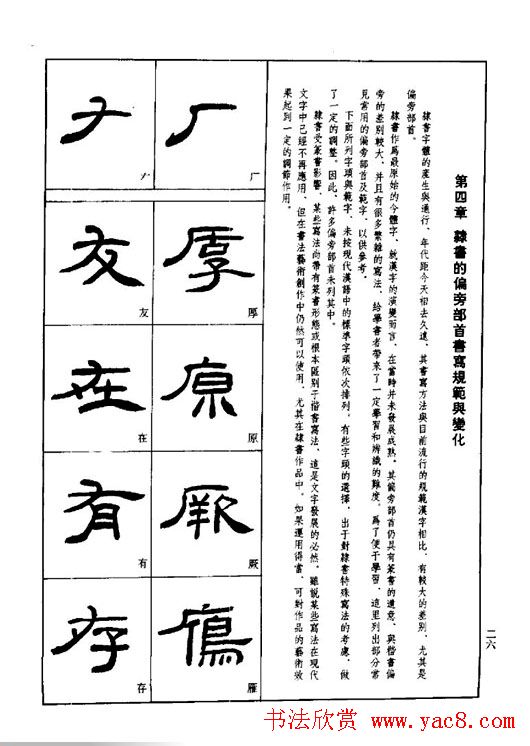 第四章 隸書的偏旁部首書寫規範與變化
隸書字體的產生與通行、年代距今天相去久遠、其書寫方法與目前流行的規範漢字相比、有較大的差别、尤其是
偏旁部首。
隸書作爲最原始的今體字、就漢字的演變而言、在當時并未發展成熟。其偏旁部首仍具有篆書的遺意、與楷書偏
旁的差别較大、并且有很多繁雜的寫法、給學書者帶來了一定學習和辨識的難度。爲了便于學習、這里列出部分常
見常用的偏旁部首及範字、以供參考。
下面所列字頭與範字、未按現代漢語中的標準字頭依次排列、有些字頭的選擇、出于對隸書特殊寫法的考慮、做
了一定的調整。因此、許多偏旁部首未列其中。
隸書受篆書影響、某些寫法尚帶有篆書形態或根本區别于楷書寫法、這是文字發展的必然。雖説某些寫法在現代
文字中已經不再應用、但在書法藝術創作中仍然可以使用、尤其在隸書作品中、如果運用得當、可對作品的藝術效
果起到一定的調節作用。
厂 厂
厚 厚
原 原
厥 厥
雁 雁
𠂇 𠂇
友 友
在 在
有 有
存 存
二六
书法欣赏 www.yac8.com